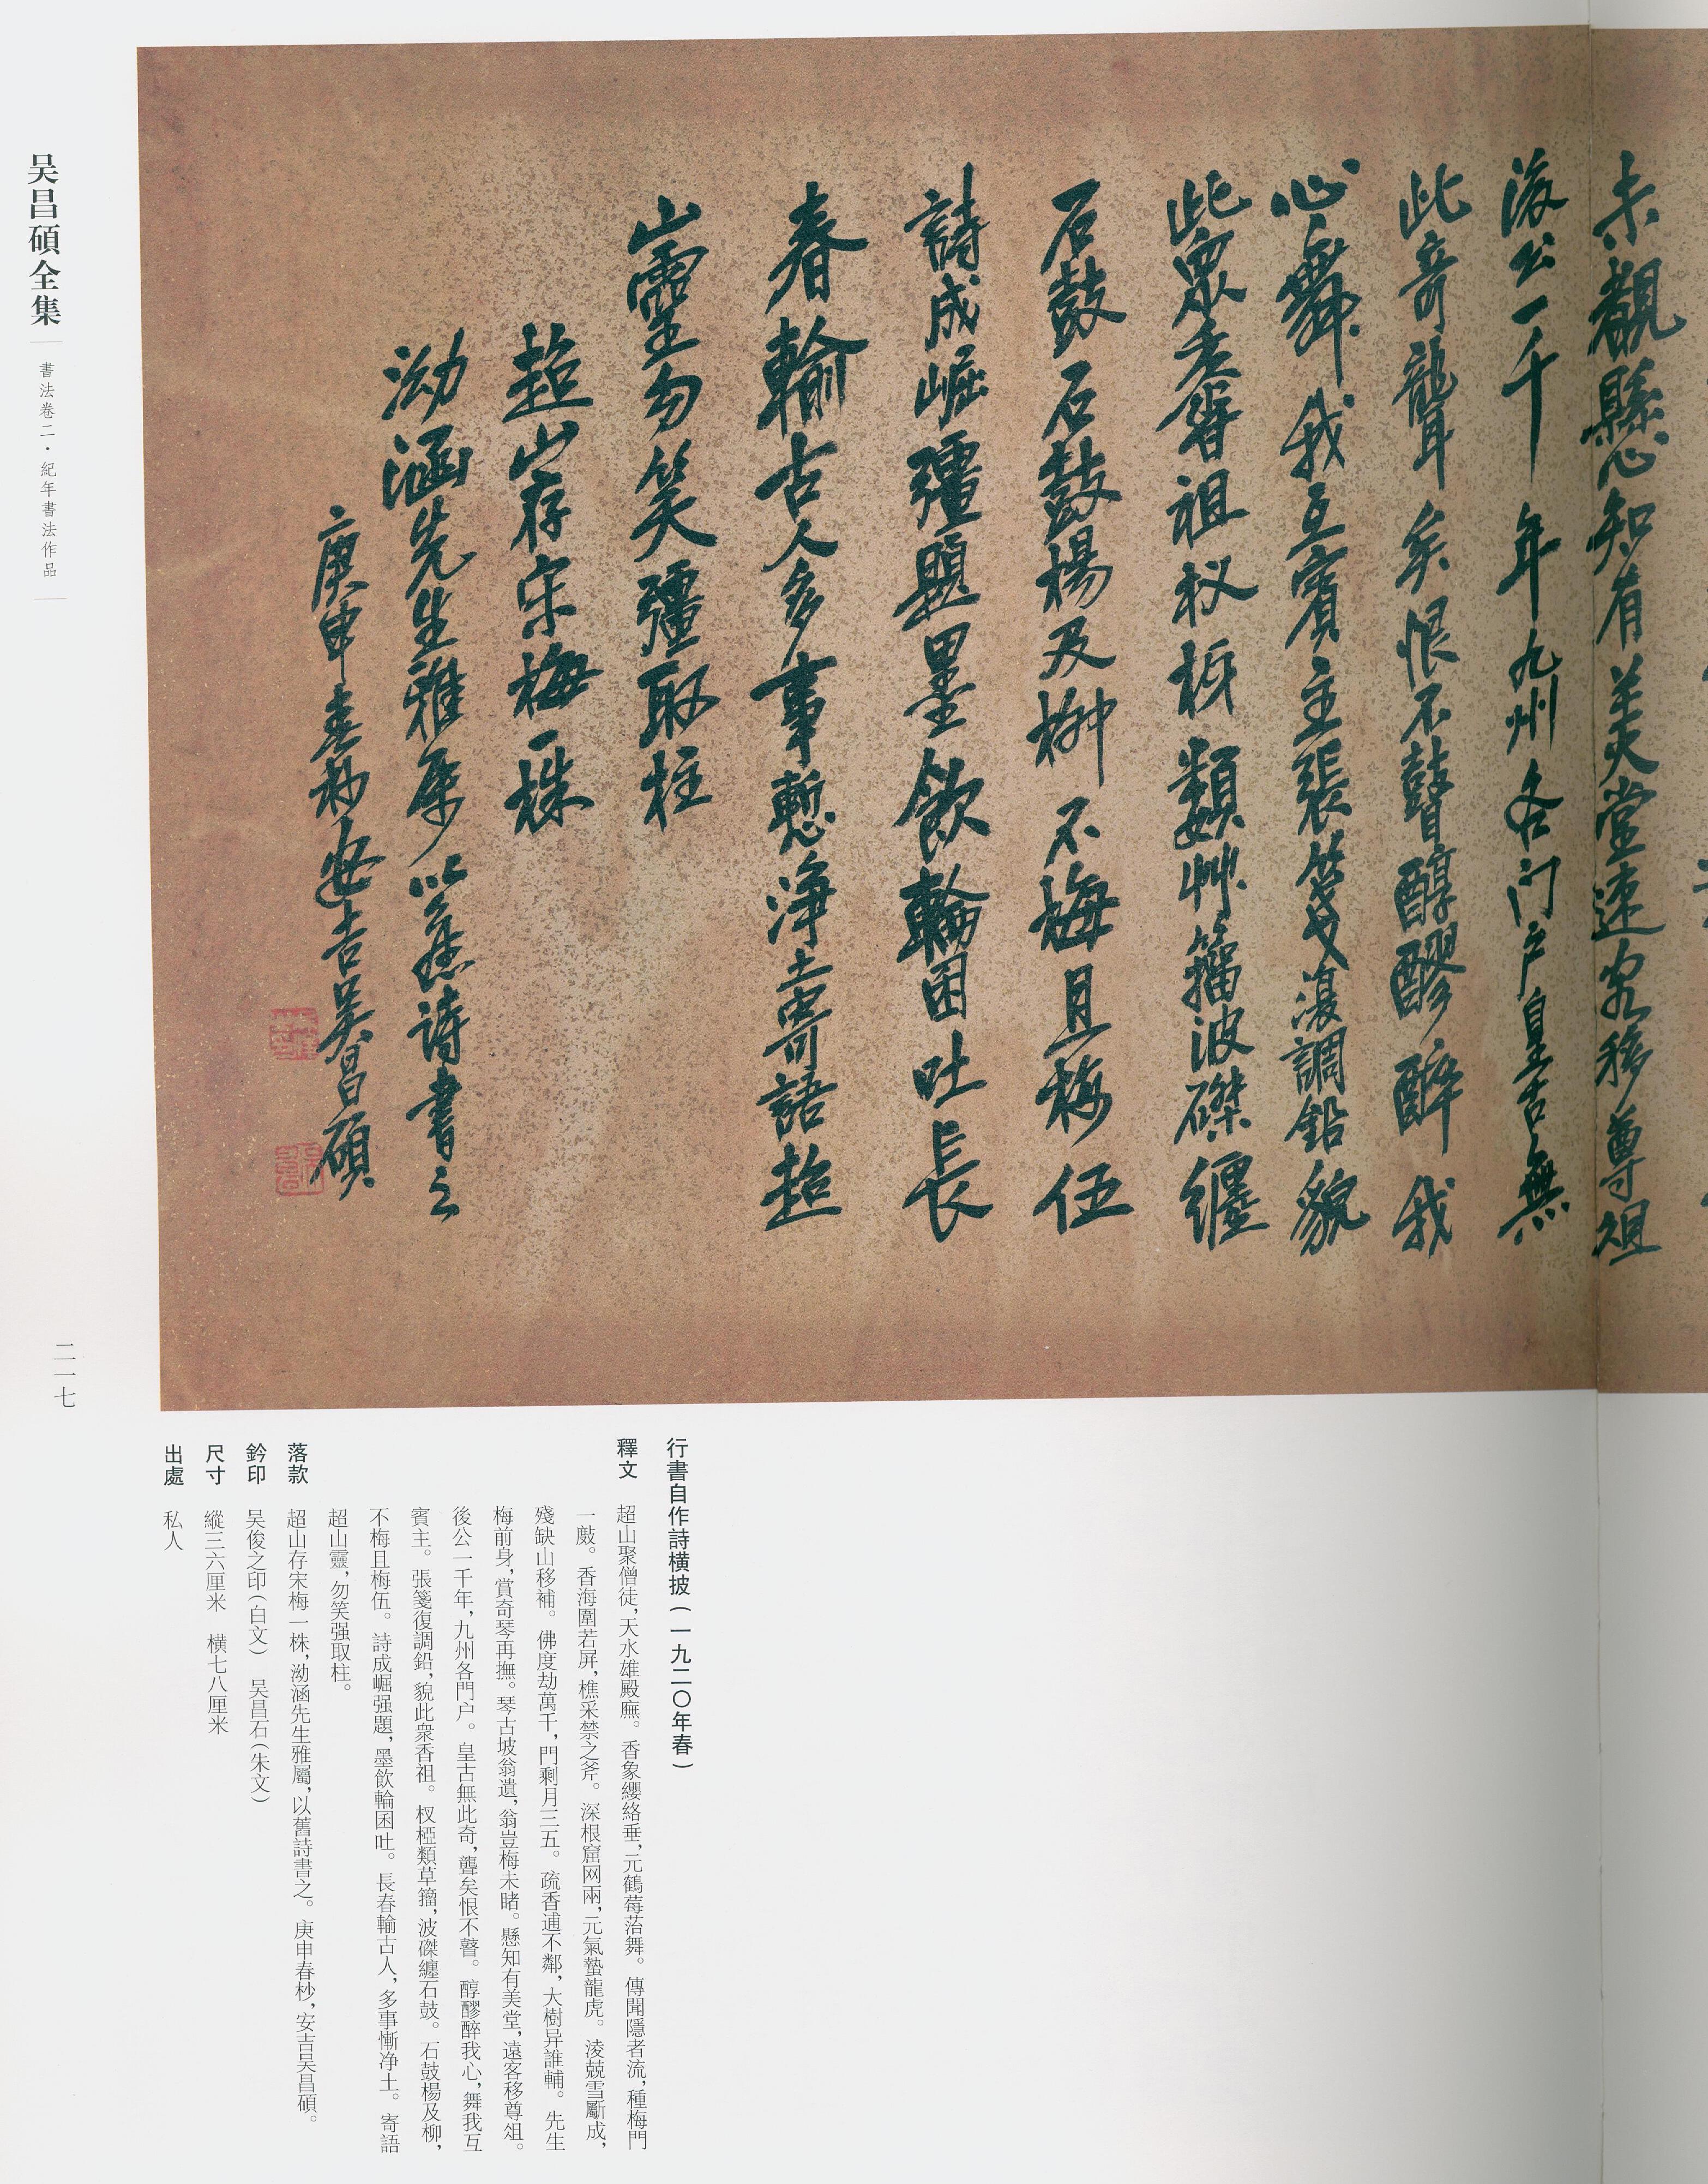 未覩縣心知有美堂遠客移尊俎
後公一千年九州各门户皇古無
此奇聾矣恨不瞽醇醪醉我
心舞我互賓主張箋復調鉛貌
此眾香祖杈枒類艸籀波磔纏
石鼓石鼓楊及柳不梅且梅伍
詩成崛彊題墨飲輪囷吐長
春輸古人多事慙淨土寄語超
山靈勿笑彊取柱
超山存宋梅一株
泑涵先生雅屬以舊詩書之
庚申春杪安吉吴昌碩
吴昌碩全集
書法卷二·紀年書法作品
二一七
行書自作詩横披(一九二〇年春)
釋文 超山聚僧徒,天水雄殿廡。香象纓絡垂,元鶴莓苔舞。傳聞隱者流,種梅門
一敲。香海圍若屏,樵采禁之斧。深根窟网兩,元氣蟄龍虎。淩兢雪斸成,
殘缺山移補。佛度劫萬千,門剩月三五。疏香逋不鄰,大樹异誰輔。先生
梅前身,賞奇琴再撫。琴古坡翁遺,翁豈梅未睹。懸知有美堂,遠客移尊俎。
後公一千年,九州各門户。皇古無此奇,聾矣恨不瞽。醇醪醉我心,舞我互
賓主。張箋復調鉛,貌此衆香祖。杈椏類草籀,波磔纏石鼓。石鼓楊及柳,
不梅且梅伍。詩成崛强題,墨飲輪囷吐。長春輸古人,多事慚净土。寄語
超山靈,勿笑强取柱。
落款 超山存宋梅一株,泑涵先生雅屬,以舊詩書之。庚申春杪,安吉吴昌碩。
鈐印 吴俊之印(白文) 吴昌石(朱文)
尺寸 縱三六厘米 横七八厘米
出處 私人